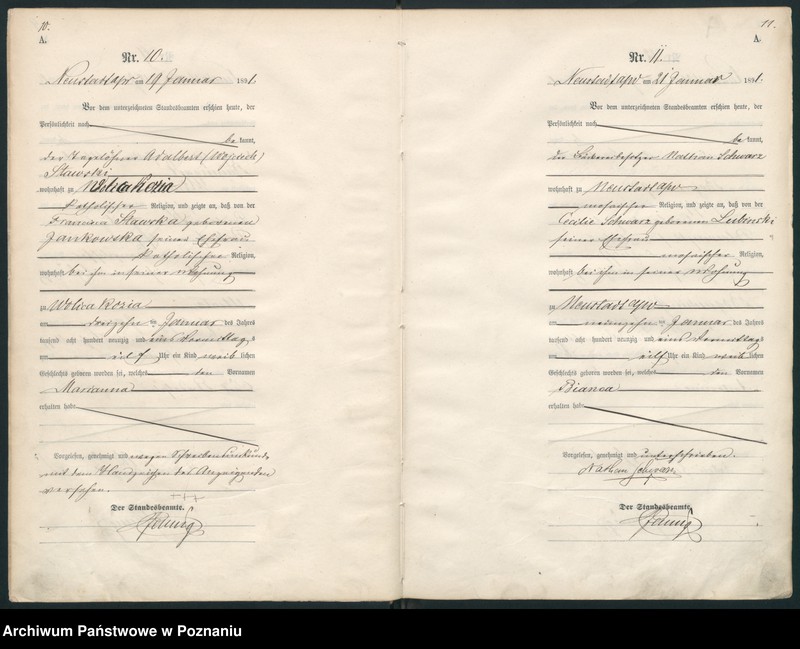 10.
A.
Nr. 10.
Neustadt a/W am 19 Januar 1881.
Vor dem unterzeichneten Standesbeamten erschien heute, der
Persönlichkeit nach
be kannt,
der Tagelöhner Adalbert (Wojciech)
Stawski
wohnhaft zu Wolica Kozia
katholischer Religion, und zeigte an, daß von der
Franziska Stawska geborenen
Jankowska seiner Ehefrau
katholischer Religion,
wohnhaft bei ihm in seiner Wohnung
zu Wolica Kozia
am dreizehn ten Januar des Jahres
tausend acht hundert achtzig und eins Vormittags
um elf Uhr ein Kind weib lichen
Geschlechts geboren worden sei, welches den Vornamen
Marianna
erhalten habe
Vorgelesen, genehmigt und wegen Schreibensunkunde
mit dem Handzeichen des Anzeigenden
versehen.
+++
Der Standesbeamte.
11.
A.
Nr. 11.
Neustadt a/W am 21 Januar 1881.
Vor dem unterzeichneten Standesbeamten erschien heute, der
Persönlichkeit nach
be kannt,
der Nathan Schwarz
wohnhaft zu Neustadt a/W
mosaischer Religion, und zeigte an, daß von der
Cecilie Schwarz geborenen Lubinski
seiner Ehefrau
mosaischer Religion,
wohnhaft bei ihm in seiner Wohnung
zu Neustadt a/W
am neunzehn ten Januar des Jahres
tausend acht hundert achtzig und eins Vormittags
um elf Uhr ein Kind weib lichen
Geschlechts geboren worden sei, welches den Vornamen
Bianca
erhalten habe
Vorgelesen, genehmigt und unterschrieben.
Nathan Schwarz.
Der Standesbeamte.
Archiwum Państwowe w Poznaniu